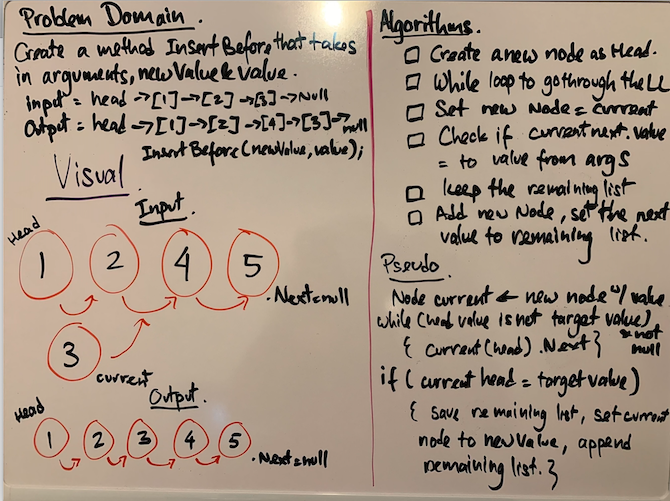 Problem Domain.
Create a method InsertBefore that takes
in arguments, newValue & value.
input = head →[1]→[2]→[3]→Null
Output = head →[1]→[2]→[4]→[3]→null
InsertBefore(newValue, value);
Visual.
Input.
Head
1 2 4 5
.Next=null
3
current
Output.
Head
1 2 3 4 5
.Next=null
Algorithms.
Create a new node as Head.
While loop to go through the LL
Set new Node = current
Check if currentnext.value
= to value from args
keep the remaining list
Add new Node, set the next
value to remaining list.
Pseudo.
Node current ← new node w/ value
while (head value is not target value)
{ current(head).Next }
*not
null
if ( current head = target value)
{ save remaining list, set current
node to newValue, append
remaining list. }